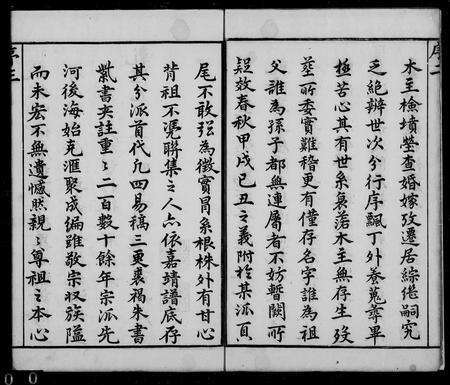 序二
木主檢墳塋查婚嫁攷遷居綜絶嗣究
乏絶辨世次分行序飄丁外養蒐葬畢
極苦心其有世系襄落木主無存生歿
塋所委實難稽更有僅存名字誰為祖
父誰為孫子都無連屬者不妨暫闕所
疑效春秋甲戌己丑之義附於某派頁
尾不敢弦為徵實冒系根株外有甘心
背祖不憑聯集之人亦依嘉靖譜底存
其分派首代凡四易稿三更裘褐朱書
紫書夾註重〻二百數十餘年宗派先
河後海始克滙聚成編雖敬宗収族隘
而未宏不無遺憾然親〻尊祖之本心
序三
0 0